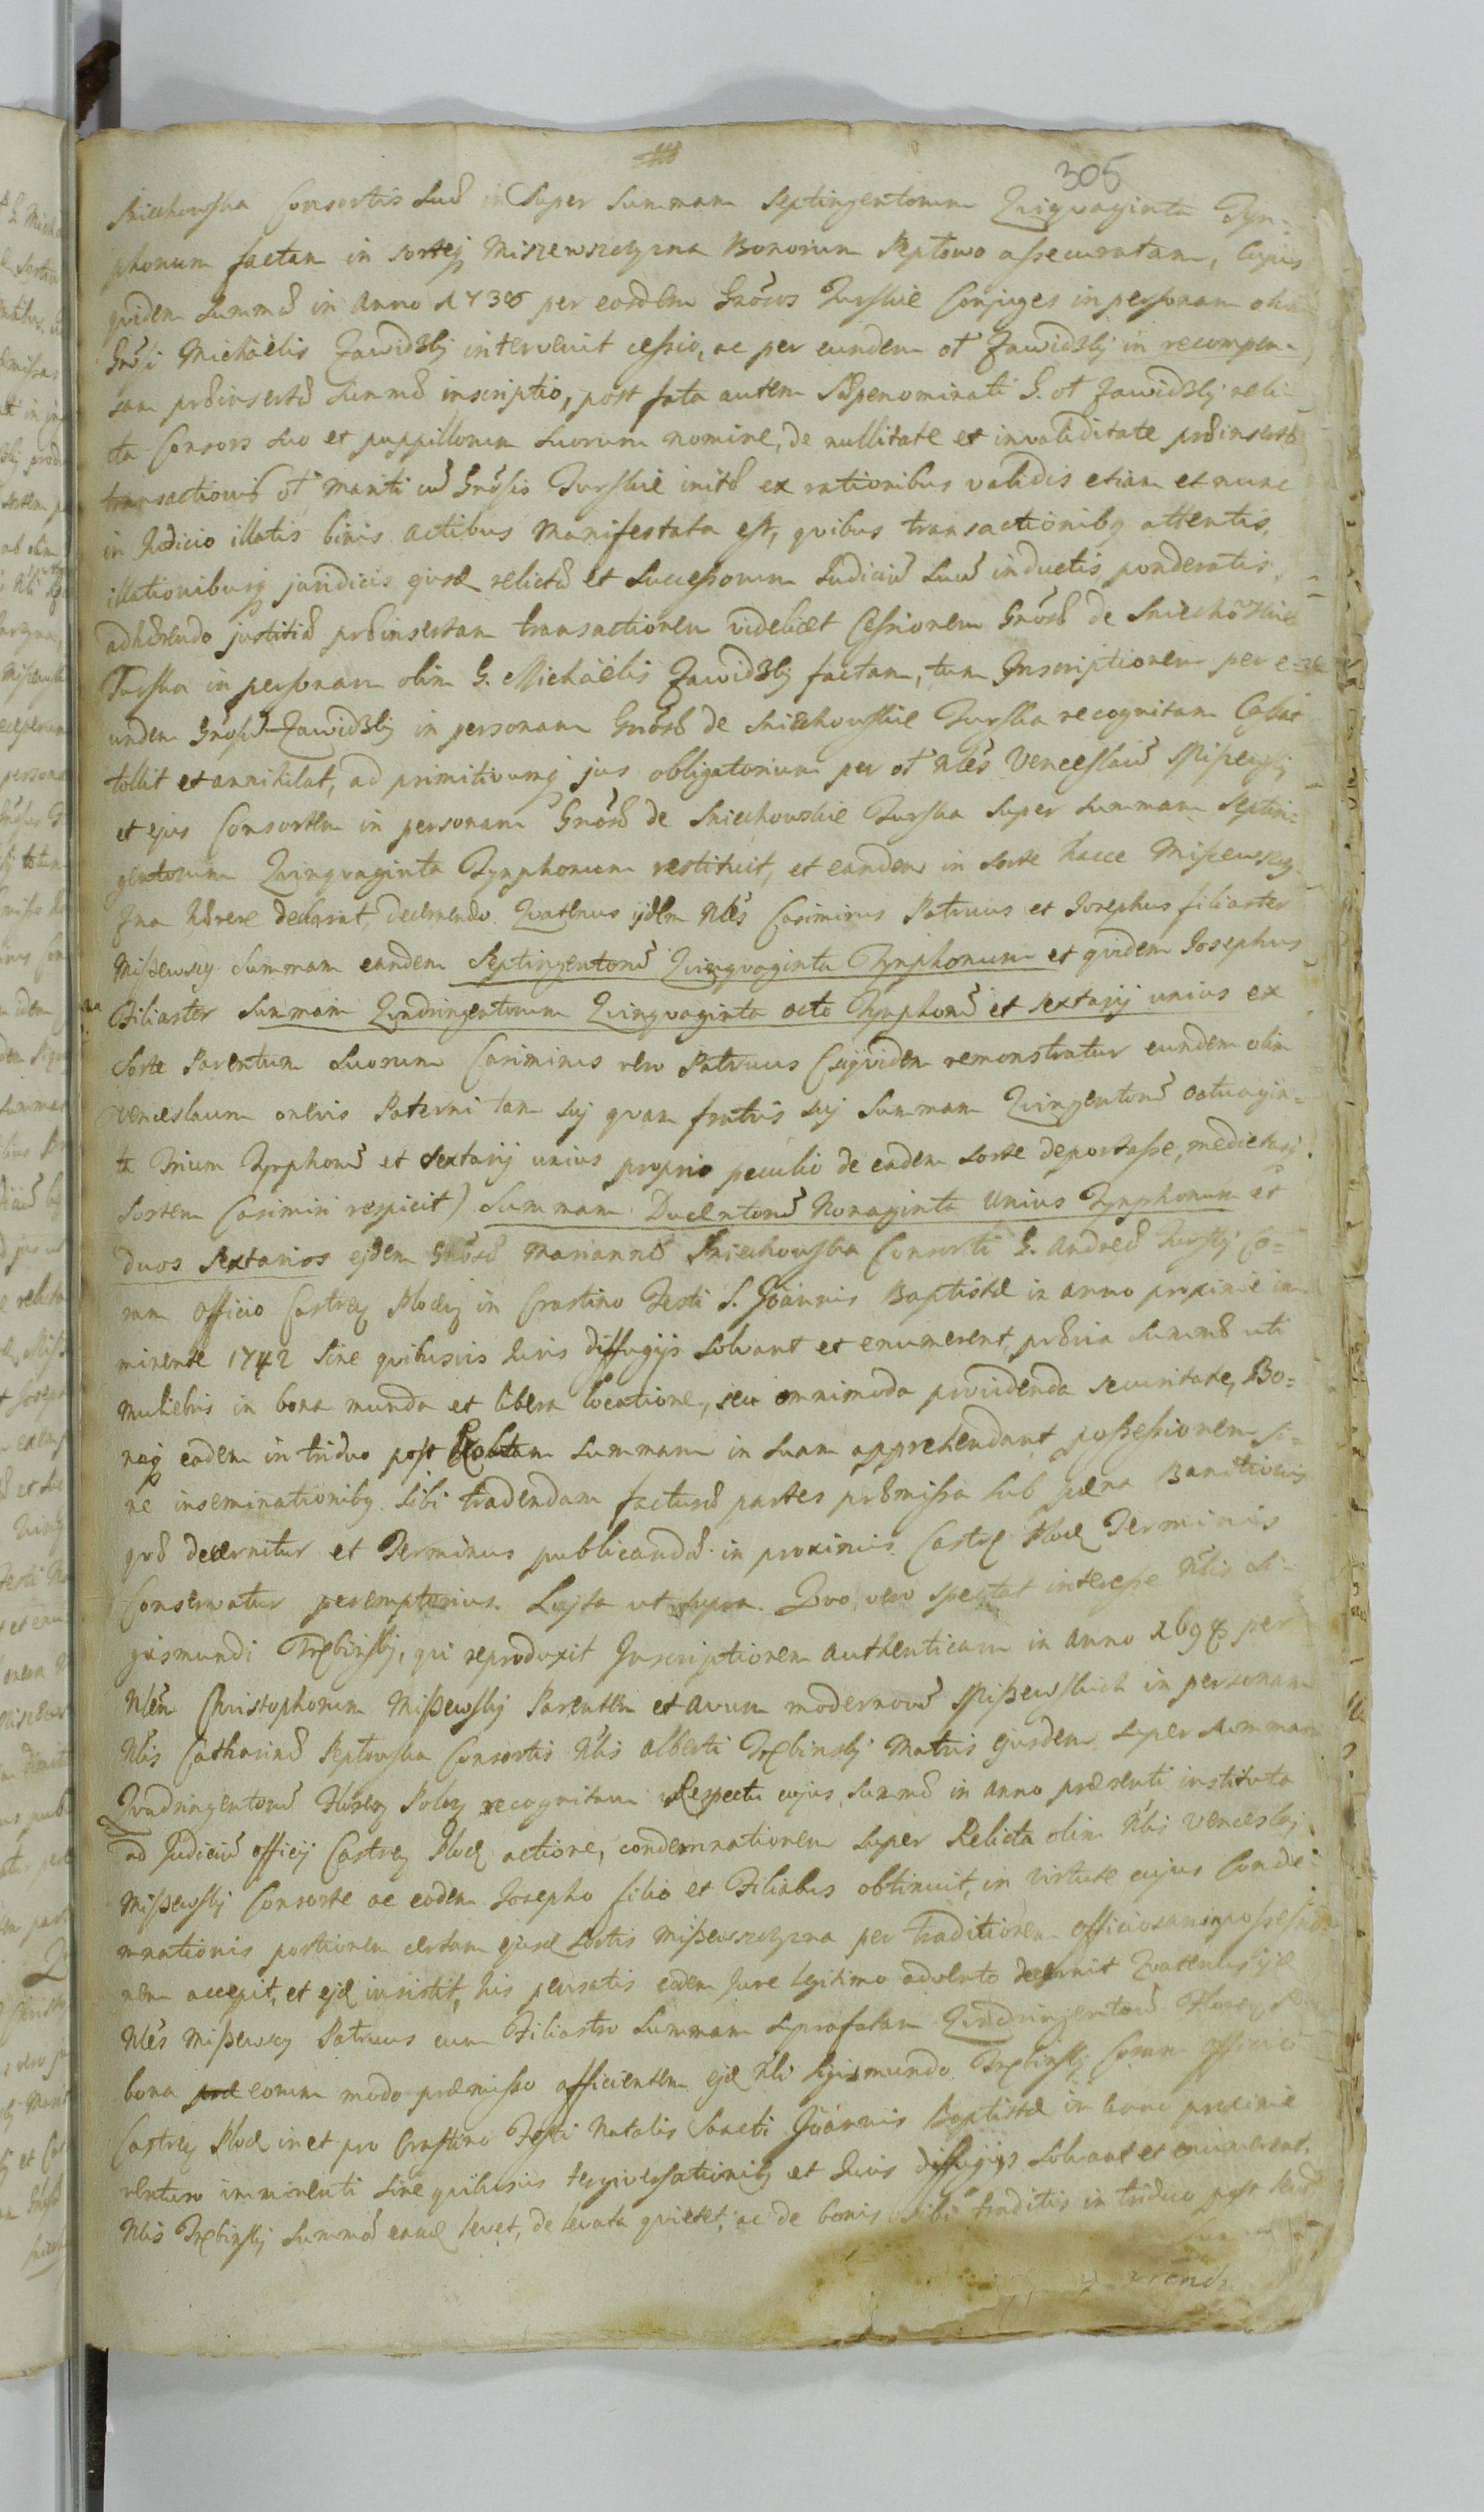 305
Sniechowska Consortis Suæ in Super Summam Septingentorum Quinquaginta Tyn-
phonum factam in sortej Miszewszczyzna Bonorum Septowo assecuratam, Cujus
quidem Summæ in Anno 1738 per eosdem Gnosos Turskie Conjuges in personam olim
Gnosi Michaëlis Zawidzkij intervenit cessio, ac per eundem ol Zawidzkij in recompen-
sam præinsertæ Summæ inscriptio, post fata autem Sæpenominati G. ol Zawidzkij reli-
cta Consors Suo et puppillorum Suorum nomine, de nullitate et invaliditate præinsertæ
transactionis ol Mariti cu Gnosis Turskie initæ ex rationibus validis etiam et nunc
in Judicio illatis binis actibus Manifestata est, quibus transactionibq attentis,
illationibusq juridicis ejusd relictæ et Successorum Judiciu Suu inductis ponderatis,
adhærendo justitiæ præinsertam transactionem videlicet Cessionem Gnosæ de Sniechowskie
Turska in personam olim G. Michaëlis Zawidzkij factam, tum Inscriptionem per e-
undem Gnosu Zawidzkij in personam Gnosæ de Sniechowskie Turska recognitam Cassat
tollit et annihilat, ad primitivumq jus obligatorium per ol Nles Venceslau Miszewskij
et ejus Consortem in personam Gnosæ de Sniechowskie Turska Super Summam Septin-
gentorum Quinquaginta Tynphonum restituit, et eandem in Sorte hacce Miszewszczy-
zna hærere declarat, decernendo. Quatenus ijdem Nles Casimirus Patruus et Josephus filiaster
Miszewscy Summam eandem Septingentoru Quinquaginta Tynphonum et quidem Josephus
Filiaster Summam Quadringentorum Quinquaginta octo Tynphonu et sextarij unius ex
Sorte Parentum Suorum Casimirus vero Patruus (siquidem remonstratur eundem olim
Venceslaum oneris Paterni tam sui quam fratris sui Summam Quingentoru octuagin-
ta Trium Tynphonu et Sextarij unius proprio peculio de eadem Sorte deportasse, medietasq
Sortem Casimiri respicit) Summam Ducentoru Nonaginta Unius Tynphonum et
duos Sextarios ejdem Gnosæ Mariannæ Sniechowska Consorti G. Andreæ Turskij Co-
ram Officio Castren Plocen in Crastino Festi S. Joannis Baptistæ in Anno proxime im
minente 1742 Sine quibusvis Juris diffugijs Solvant et enumerent, prævia Summæ uti
Muliebris in bona munda et libera locatione, seu omnimoda providenda securitate, Bo-
naq eadem in triduo post Summam in Suam apprehendant possessionem, Si-
ne inseminationibq Sibi tradendam facturæ partes præmissa Sub pæna Banitionis
quæ decernitur et Terminus publicandæ in proximis Castr Ploc Terminis
Conservatur peremptorius. Lujta ut Supra. Quo vero spectat interesse Nlis Si-
gismundi Trębinskij, qui reproduxit Inscriptionem authenticam in Anno 1698 per
Nlem Christophorum Miszewskij Parentem et avum modernoru Miszewskich in personam
Nlis Catharinæ Septowska Consortis Nlis Alberti Trębinskij Matris ejusdem Super Summam
Quadringentoru Floren Polen recognitam Respectu cujus Summæ in Anno præsenti instituta
ad Judiciu officij Castren Ploc actione, condemnationem Super Relicta olim Nlis Venceslaj
Miszewskij Consorte ac eodem Josepho filio et Filiabus obtinuit, in virtute cujus Conde-
mnationis portionem certam ejusd Sortis Miszewszczyzna per traditionem officiosam in possessio-
nem accepit, et ejd insistit, his pensatis eadem Jure legitimo advento decernit Quatenus ijd
Nles Miszewscy Patruus cum Filiastro Summam Suprafatam Quadringentoru Floren
bona eorum modo præmisso afficientem ejd Nli Sigismundo Trębinskij Coram Officio
Castren Ploc in et pro Crastino Festi Natalis Sancti Joannis Baptistæ in Anno proxime
venturo imminenti Sine quibusvis tergiversationibq et Juris diffugijs Solvant et enumerent.
Nlis Trębinskij Summā eand levet, de levata quietet, ac de bonis sibi traditis in triduo post